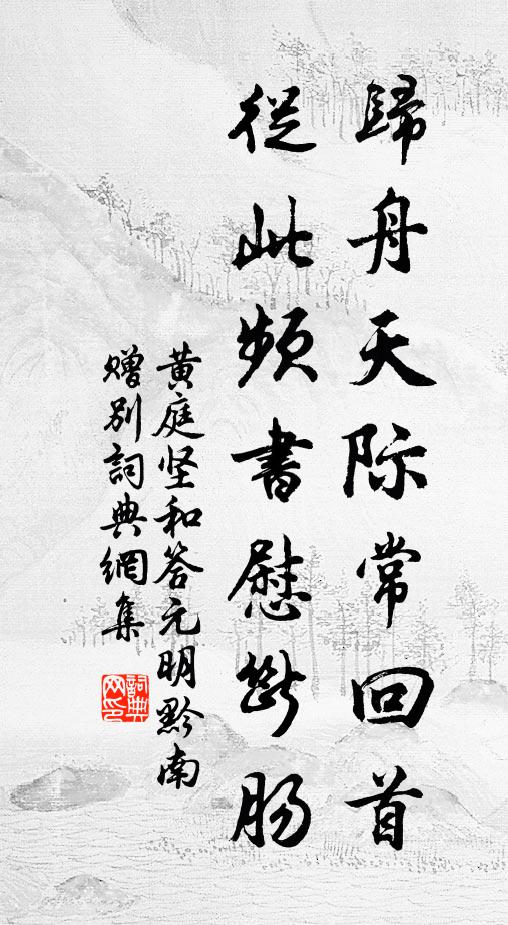 歸舟天际常回首
從此頻書慰斷腸
黄庭坚和答元明黔南
赠别詞典網集
詞典
网印